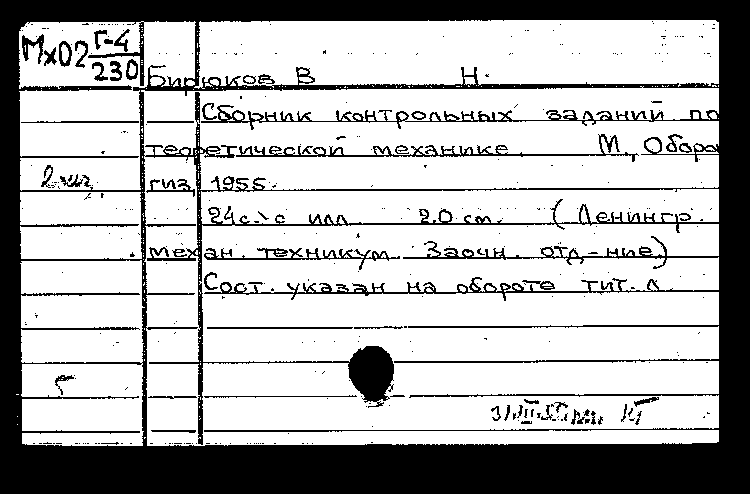 Мх02 Г-4
230
Бирюков В Н.
Сборник контрольных заданий по
теоретической механике. М., Оборо
2 экз. гиз, 1955.
24с. с илл 20 см. (Ленингр.
механ. техникум. Заочн. отд-ние)
Сост. указан на обороте тит. л.